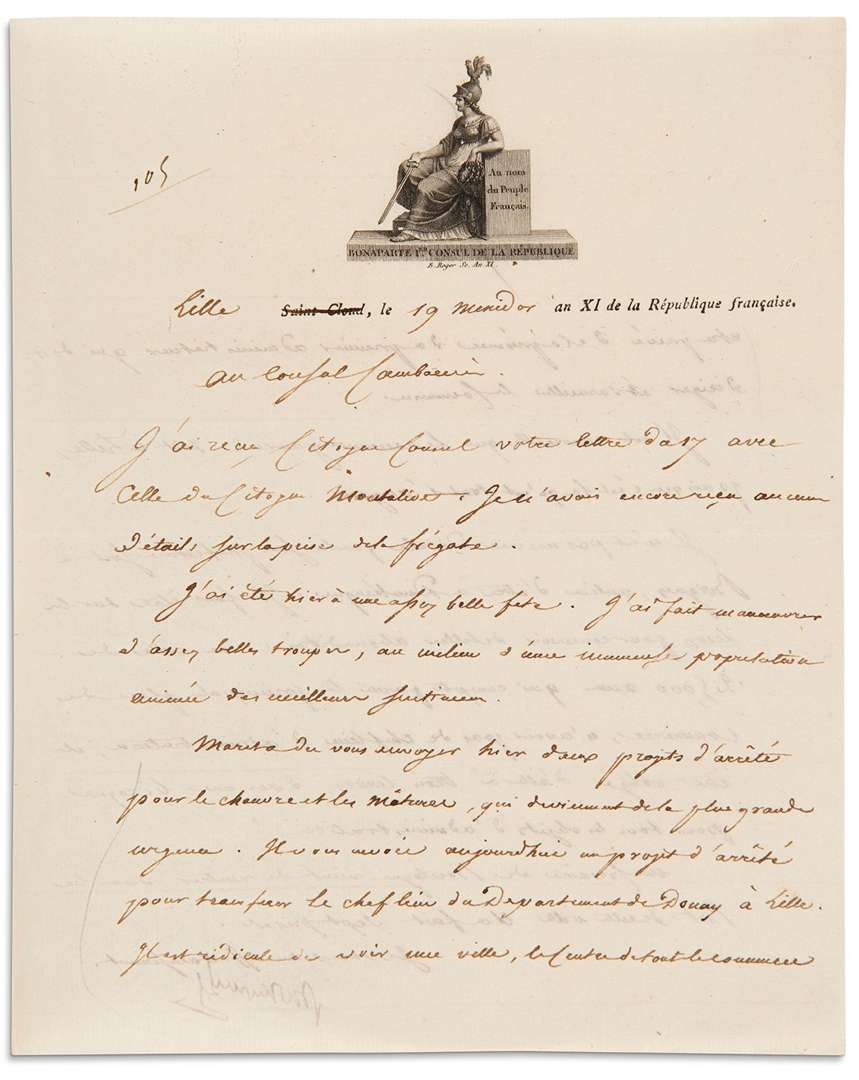 105
Au nom
du Peuple
Français.
BONAPARTE 1er. CONSUL DE LA RÉPUBLIQUE
B. Roger Sc. An XI.
Lille Saint-Cloud, le 19 Messidor an XI de la République française.
Au Consul Cambacérès.
J'ai reçu, Citoyen Consul votre lettre du 17 avec
celle du Citoyen Montalivet. Je n'avois encore reçu aucun
détails sur la prise de la frégate.
J'ai été hier à une assez belle fête. J'ai fait manœuvrer
d'assez belles troupes, au milieu d'une immense population
animée des meilleurs sentimens.
Maret a du vous envoyer hier deux projets d'arrêté
pour le chanvre et les mâtures, qui deviennent de la plus grande
urgence. Il vous envoie aujourdhui un projet d'arrêté
pour transférer le chef lieu du Département de Douay à Lille.
Il est ridicule de voir une ville, le Centre de tout le commerce